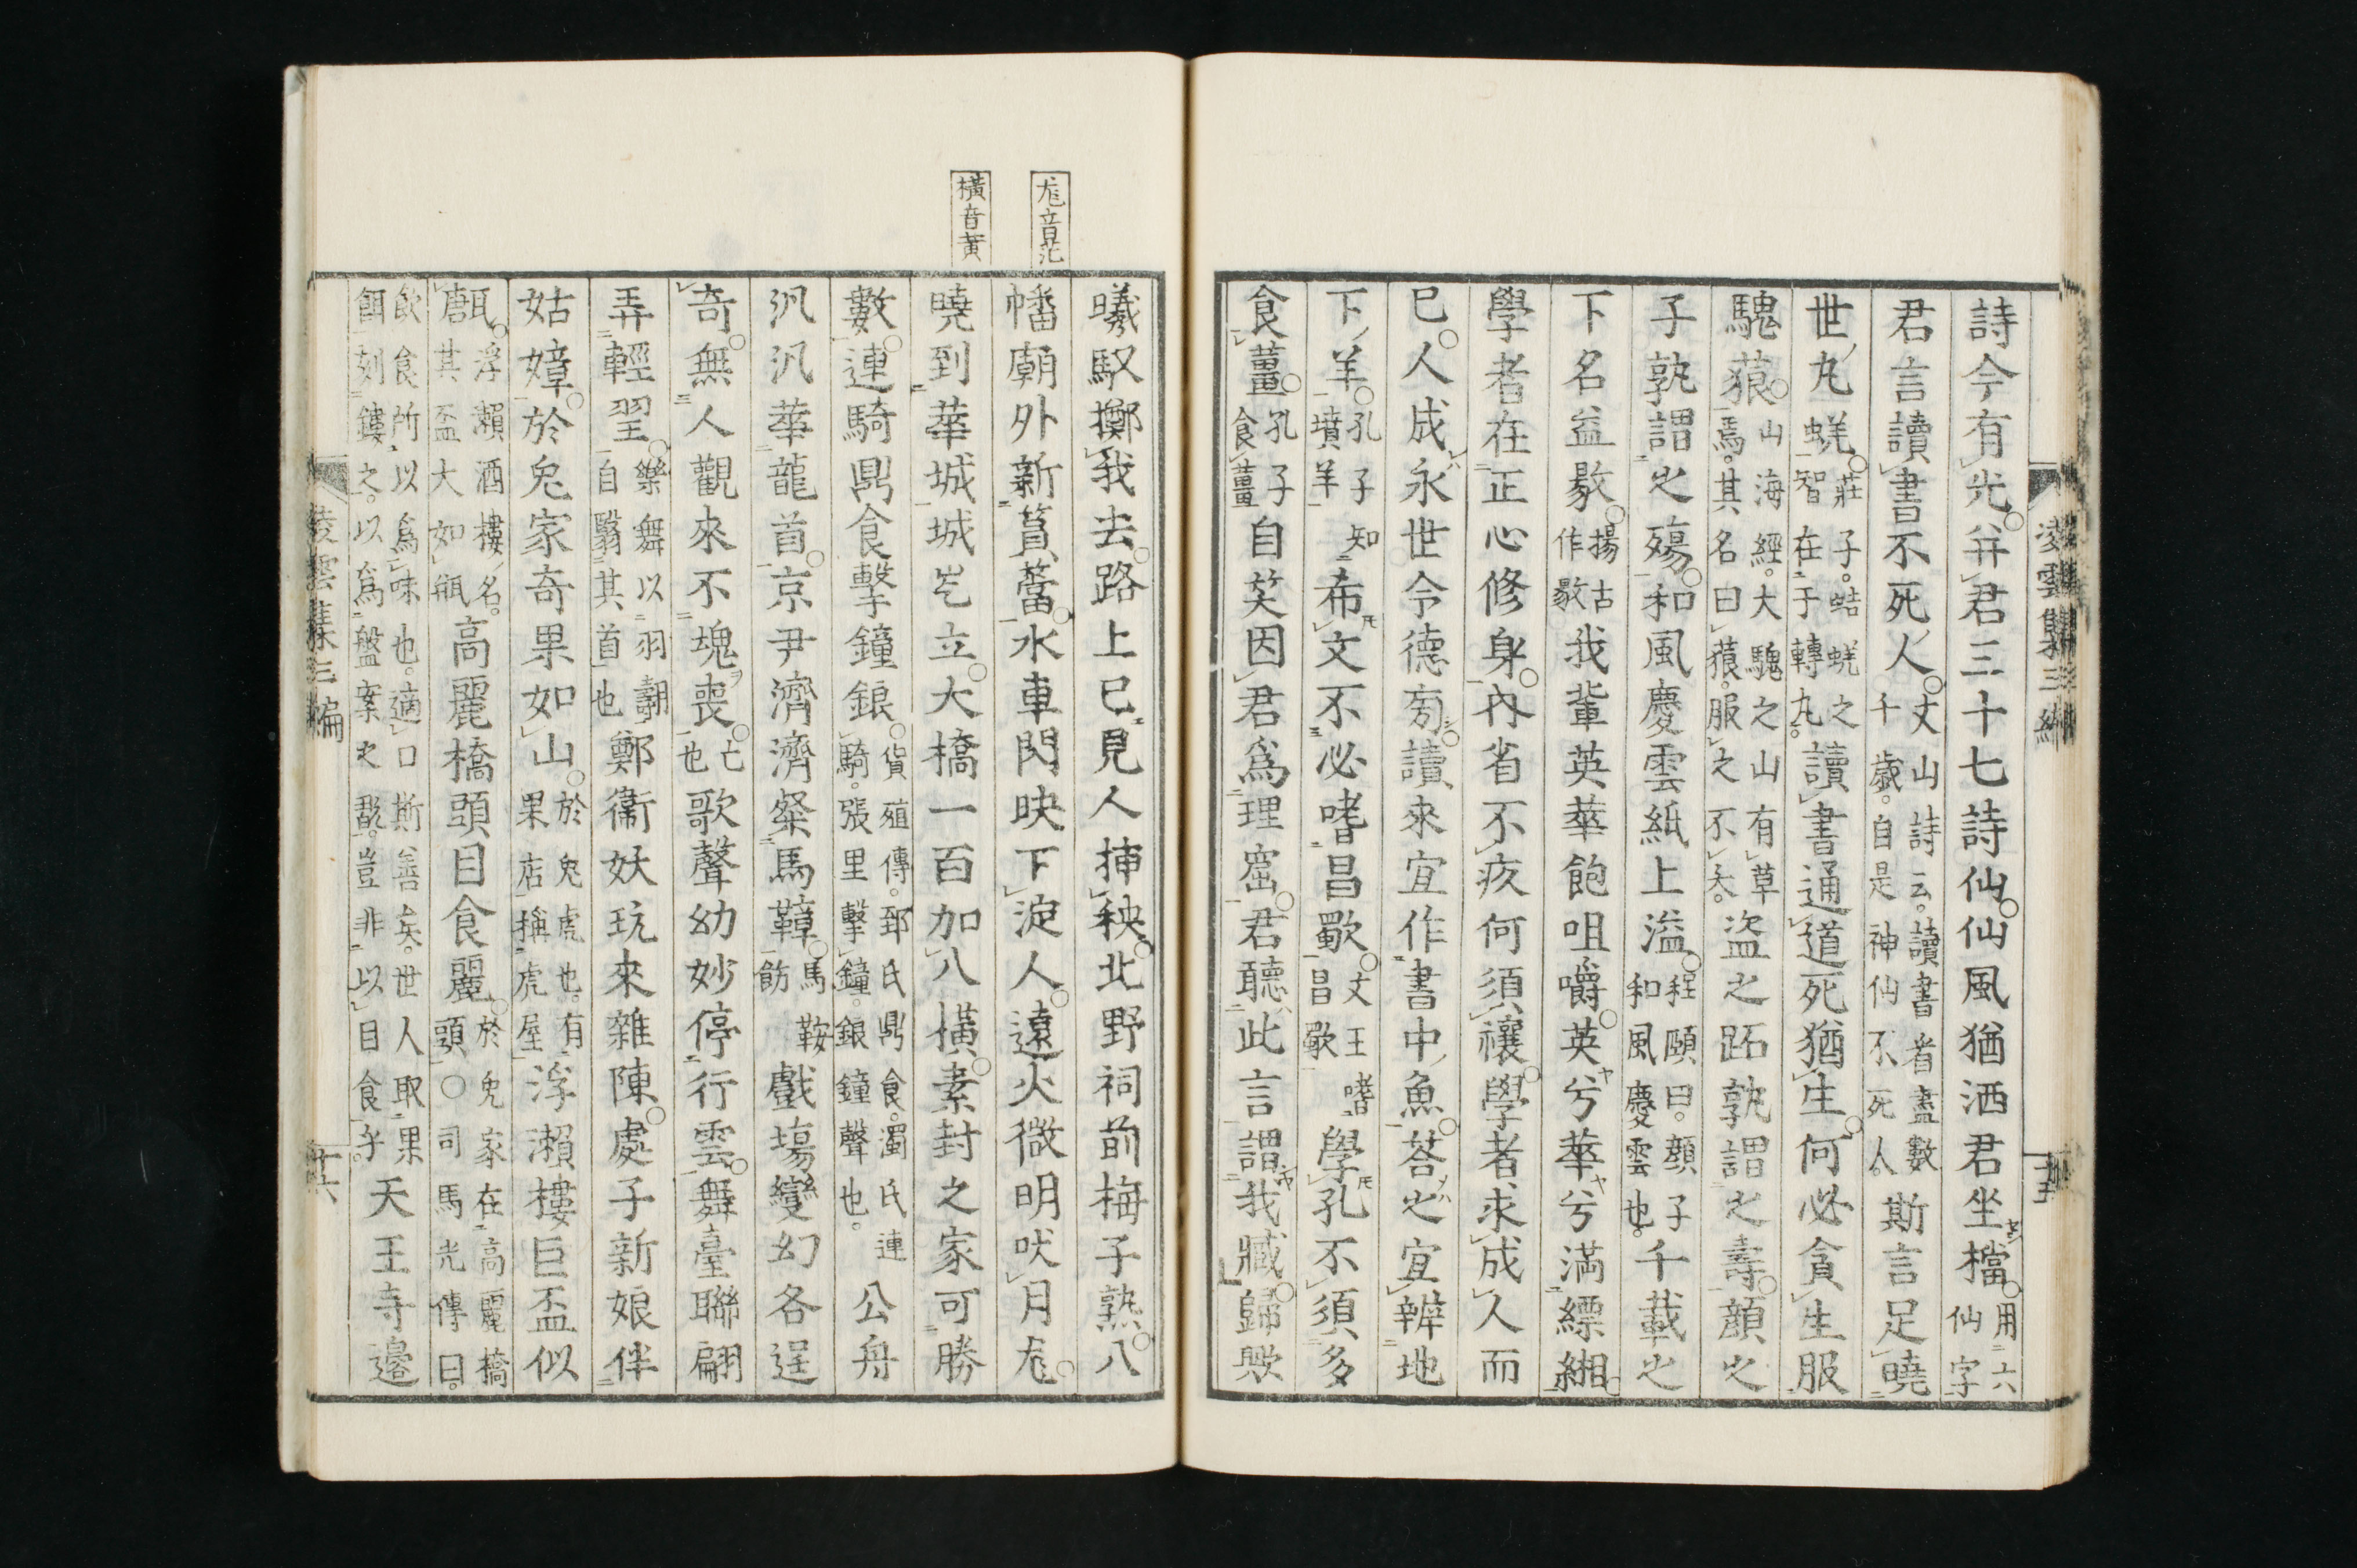 詩今有光。幷君三十七詩仙。仙風猶洒君坐檔。用六仙字
君言讀書不死人。丈山詩云。讀書者盡數千歲。自是神仙不死人。斯言足曉
世丸蜣。莊子。蛣蜣之智在于轉丸。讀書通道死猶生。何必貪生服
騩蒗。山海經。大騩之山有草焉。其名曰蒗。服之不夭。盜之跖孰謂之壽。顏之
子孰謂之殤。和風慶雲紙上溢。程頤曰。顏子和風慶雲也。千載之
下名益敭。揚古作敭我輩英華飽咀嚼。英兮華兮滿縹緗。
學者在正心修身。內省不疚何須禳。學者求成人而
已。人成永世令德匇。讀來宜作書中魚。荅之宜辨地
下羊。孔子知墳羊希文不必嗜昌歜。文王嗜昌歜學孔不須多
食薑。孔子食薑自笑因君爲理窟。君聽此言謂我臧。歸歟
凌雲集三編
十五
尨音茫
橫音黃
曦馭擲我去。路上已見人揷秧。北野祠前梅子熟。八
幡廟外新篔簹。水車閃映下淀人。遠火微明吠月尨。
曉到華城城屹立。大橋一百加八橫。素封之家可勝
數。連騎鼎食擊鐘鋃。貨殖傳。郅氏鼎食。濁氏連騎。張里擊鐘。鋃鐘聲也。公舟
汎汎華龍首。京尹濟濟粲馬鞾。馬鞍飭戲塲變幻各逞
奇。無人觀來不塊喪。亡也歌聲幼妙停行雲。舞臺聯翩
弄輕翌。樂舞以羽翿自翳其首也鄭衞妖玩來雜陳。處子新娘伴
姑嫜。於兔家奇果如山。於兔虎也。有果店稱虎屋浮瀨樓巨盃似
瓺。浮瀨酒樓名。唐其盃大如瓶高麗橋頭目食麗。於兔家在高麗橋頭〇司馬光傳曰。
飮食所以爲味也。適口斯善矣。世人取果餌刻鏤之。以爲盤案之翫。豈非以目食乎。天王寺邊
凌雲集三編
十六